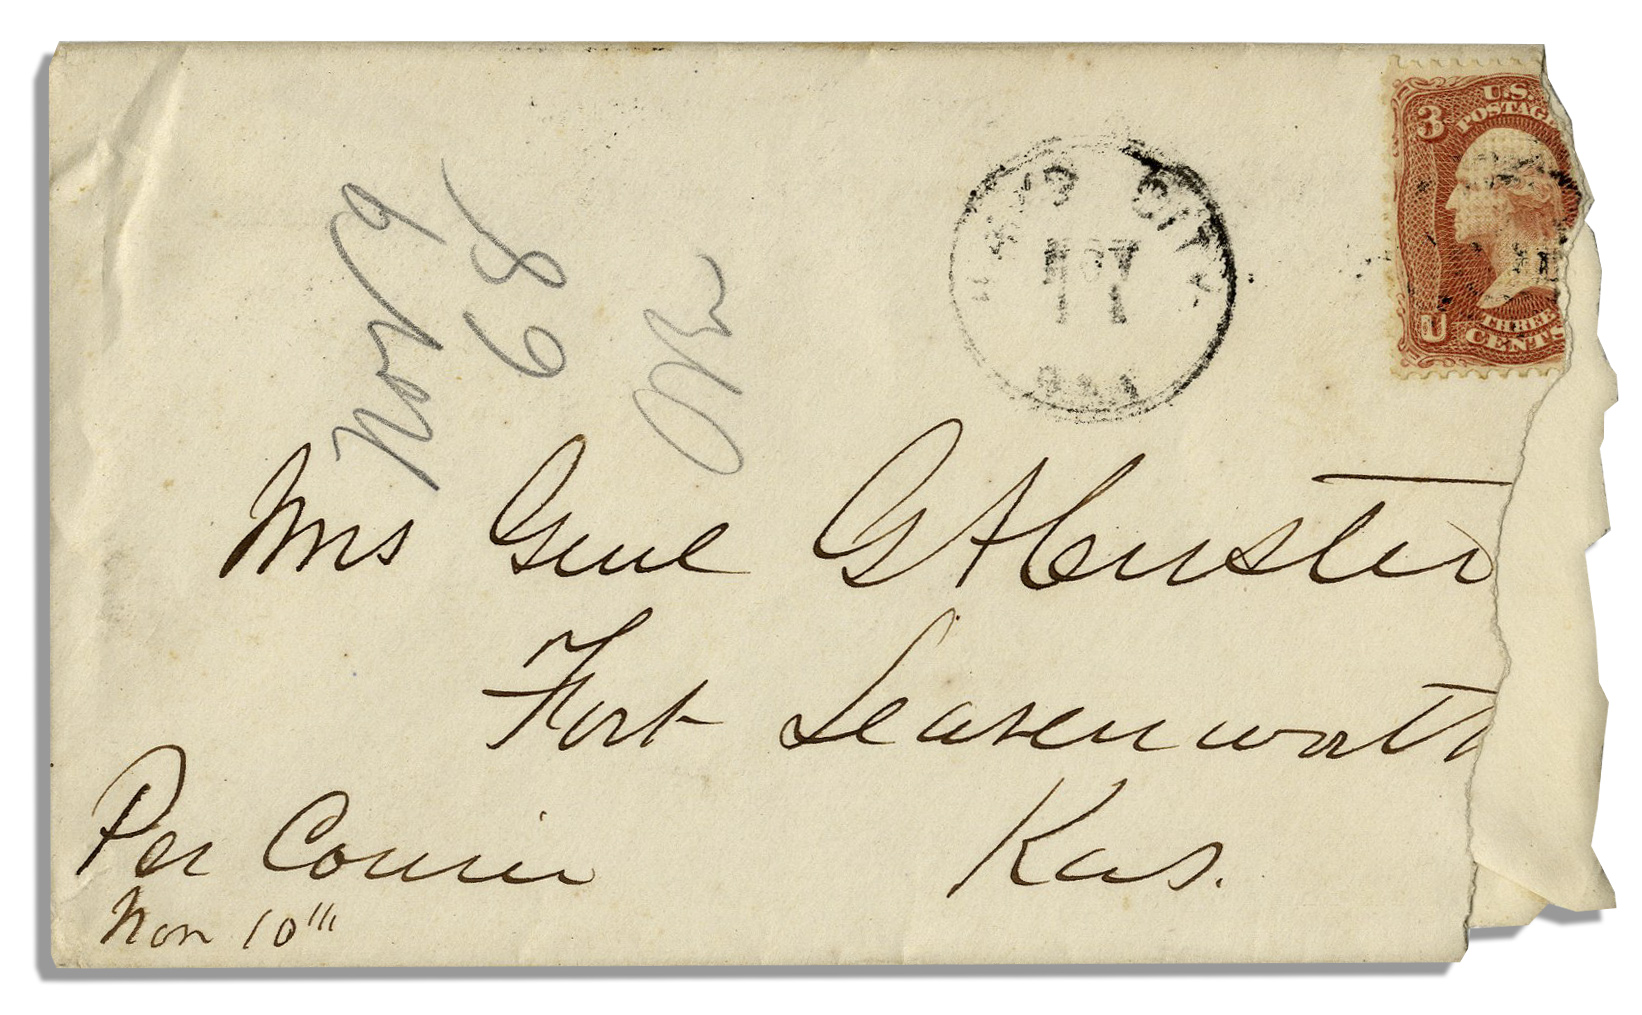 Nov 9
68
HAYS CITY
NOV
11
KAS
3
U.S.
POSTAGE
U
THREE
CENTS
Mrs Genl G A Custer
Fort Leavenworth
Kas.
Per Courier
Nov 10th